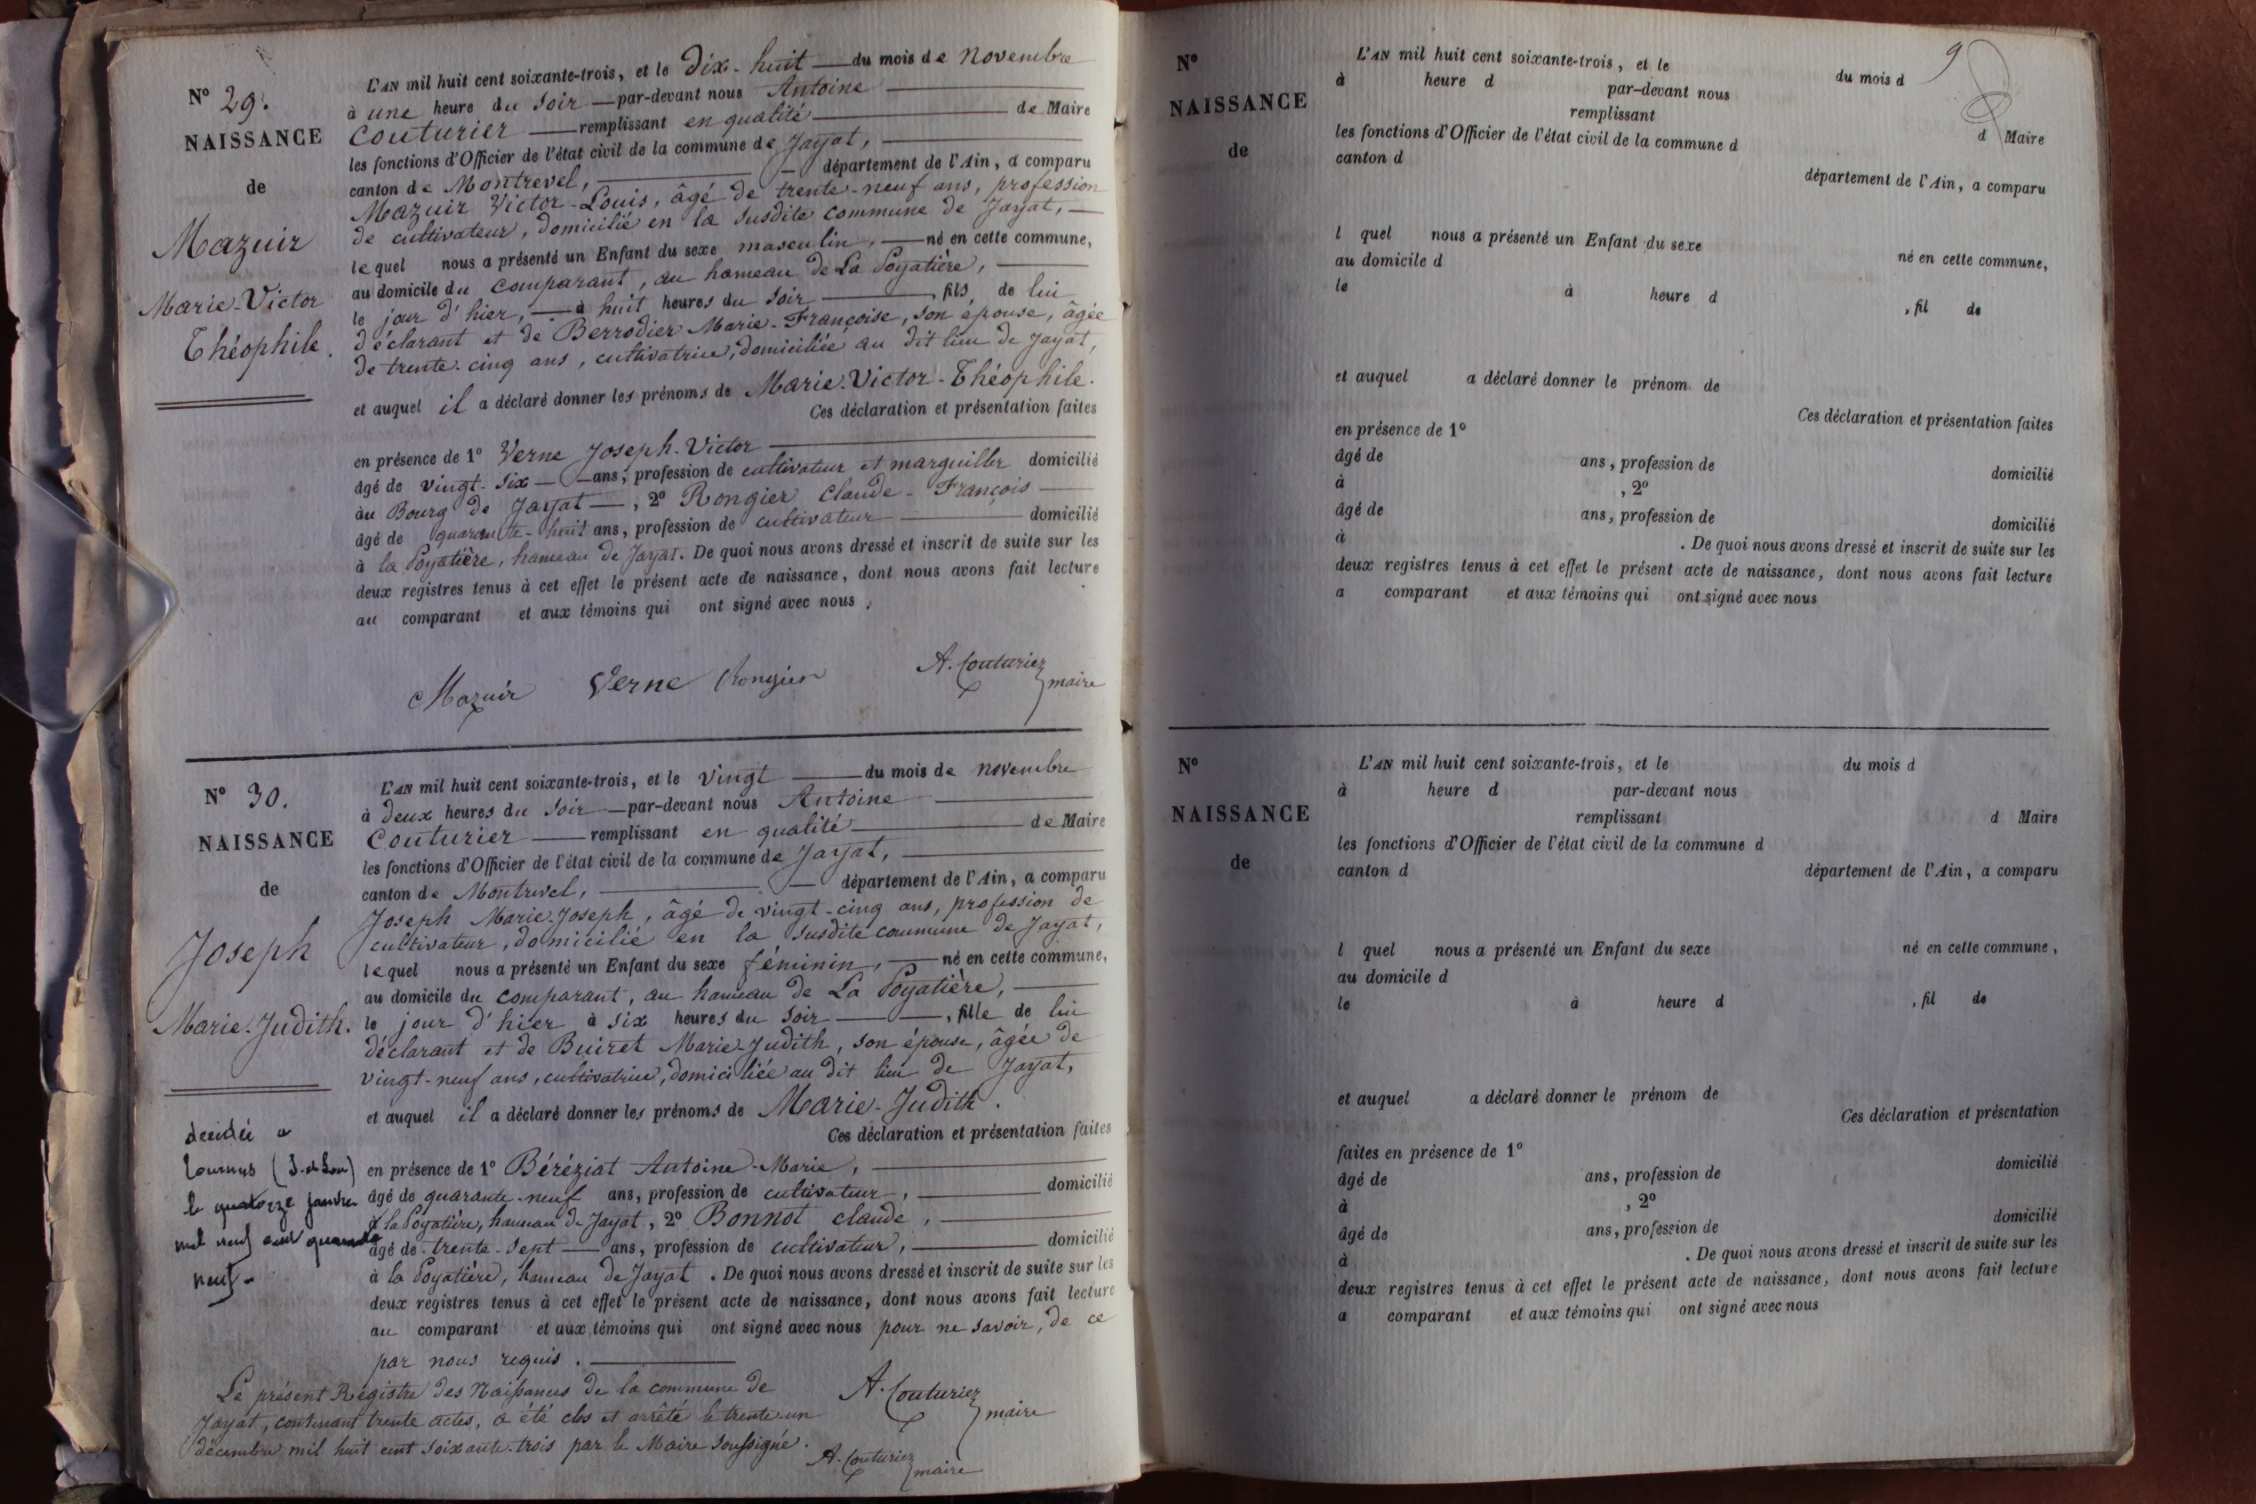 N° 29.
NAISSANCE
de
Mazuir
Marie-Victor
Théophile.
L'AN mil huit cent soixante-trois, et le dix-huit du mois de novembre
à une heure du soir par-devant nous Antoine
Couturier remplissant en qualité de Maire
les fonctions d'Officier de l'état civil de la commune de Jayat,
canton de Montrevel, département de l'Ain, a comparu
Mazuir Victor-Louis, âgé de trente-neuf ans, profession
de cultivateur, domicilié en la susdite commune de Jayat,
lequel nous a présenté un Enfant du sexe masculin, né en cette commune,
au domicile du comparant, au hameau de La Poyatière,
le jour d'hier, à huit heures du soir, fils de lui
déclarant et de Berrodier Marie-Françoise, son épouse, âgée
de trente-cinq ans, cultivatrice, domiciliée au dit lieu de Jayat,
et auquel il a déclaré donner les prénoms de Marie-Victor-Théophile.
Ces déclaration et présentation faites
en présence de 1° Verne Joseph-Victor
âgé de vingt-six ans, profession de cultivateur et marguiller domicilié
au Bourg de Jayat, 2° Rongier Claude-François
âgé de quarante-huit ans, profession de cultivateur domicilié
à la Poyatière, hameau de Jayat. De quoi nous avons dressé et inscrit de suite sur les
deux registres tenus à cet effet le présent acte de naissance, dont nous avons fait lecture
au comparant et aux témoins qui ont signé avec nous,
Mazuir Verne Rongier A. Couturier
maire
N° 30.
NAISSANCE
de
Joseph
Marie-Judith.
L'AN mil huit cent soixante-trois, et le vingt du mois de novembre
à deux heures du soir par-devant nous Antoine
Couturier remplissant en qualité de Maire
les fonctions d'Officier de l'état civil de la commune de Jayat,
canton de Montrevel, département de l'Ain, a comparu
Joseph Marie-Joseph, âgé de vingt-cinq ans, profession de
cultivateur, domicilié en la susdite commune de Jayat,
lequel nous a présenté un Enfant du sexe féminin, né en cette commune,
au domicile du comparant, au hameau de La Poyatière,
le jour d'hier à six heures du soir, fille de lui
déclarant et de Buiret Marie-Judith, son épouse, âgée de
vingt-neuf ans, cultivatrice, domiciliée au dit lieu de Jayat,
et auquel il a déclaré donner les prénoms de Marie-Judith.
Ces déclaration et présentation faites
en présence de 1° Béréziat Antoine-Marie,
âgé de quarante-neuf ans, profession de cultivateur, domicilié
à la Poyatière, hameau de Jayat, 2° Bonnot Claude,
âgé de trente-sept ans, profession de cultivateur, domicilié
à la Poyatière, hameau de Jayat. De quoi nous avons dressé et inscrit de suite sur les
deux registres tenus à cet effet le présent acte de naissance, dont nous avons fait lecture
au comparant et aux témoins qui ont signé avec nous pour ne savoir, de ce
par nous requis.
A. Couturier
maire
décidée a
Tournus (S-et-Loire)
le quatorze janvier
mil neuf cent quarante
neuf.
Le présent Registre des Naissances de la commune de
Jayat, contenant trente actes, a été clos et arrêté le trente-un
décembre mil huit cent soixante-trois par le Maire soussigné.
A. Couturier
maire
9
N°
NAISSANCE
de
L'AN mil huit cent soixante-trois, et le du mois d
à heure d par-devant nous
remplissant d Maire
les fonctions d'Officier de l'état civil de la commune d
canton d département de l'Ain, a comparu
l quel nous a présenté un Enfant du sexe né en cette commune,
au domicile d
le à heure d , fil de
et auquel a déclaré donner le prénom de
Ces déclaration et présentation faites
en présence de 1°
âgé de ans, profession de domicilié
à , 2°
âgé de ans, profession de domicilié
à . De quoi nous avons dressé et inscrit de suite sur les
deux registres tenus à cet effet le présent acte de naissance, dont nous avons fait lecture
a comparant et aux témoins qui ont signé avec nous
N°
NAISSANCE
de
L'AN mil huit cent soixante-trois, et le du mois d
à heure d par-devant nous
remplissant d Maire
les fonctions d'Officier de l'état civil de la commune d
canton d département de l'Ain, a comparu
l quel nous a présenté un Enfant du sexe né en cette commune,
au domicile d
le à heure d , fil de
et auquel a déclaré donner le prénom de
Ces déclaration et présentation
faites en présence de 1°
âgé de ans, profession de domicilié
à , 2°
âgé de ans, profession de domicilié
à . De quoi nous avons dressé et inscrit de suite sur les
deux registres tenus à cet effet le présent acte de naissance, dont nous avons fait lecture
a comparant et aux témoins qui ont signé avec nous